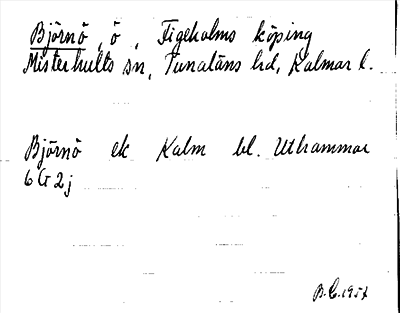 Björnö, ö, Figeholms köping
Misterhults sn, Tunaläns hd, Kalmar l.
Björnö ek Kalm bl. Uthammar
6 G 2 j
B.C. 1957